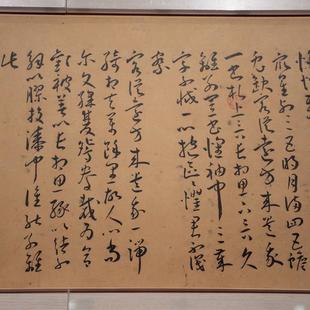 眾星列三五明月滿四五蟾
兔缺客從遠方來遺我
一書札上言長相思下言久
離別置書懷袖中三歲
字不滅一心抱區〻懼君不識
察
客從遠方來遺我一端
綺相去萬餘里故人心尚
爾文綵雙鴛鴦裁為合
歡被著以長相思緣以結不
解以膠投漆中誰能別離
此